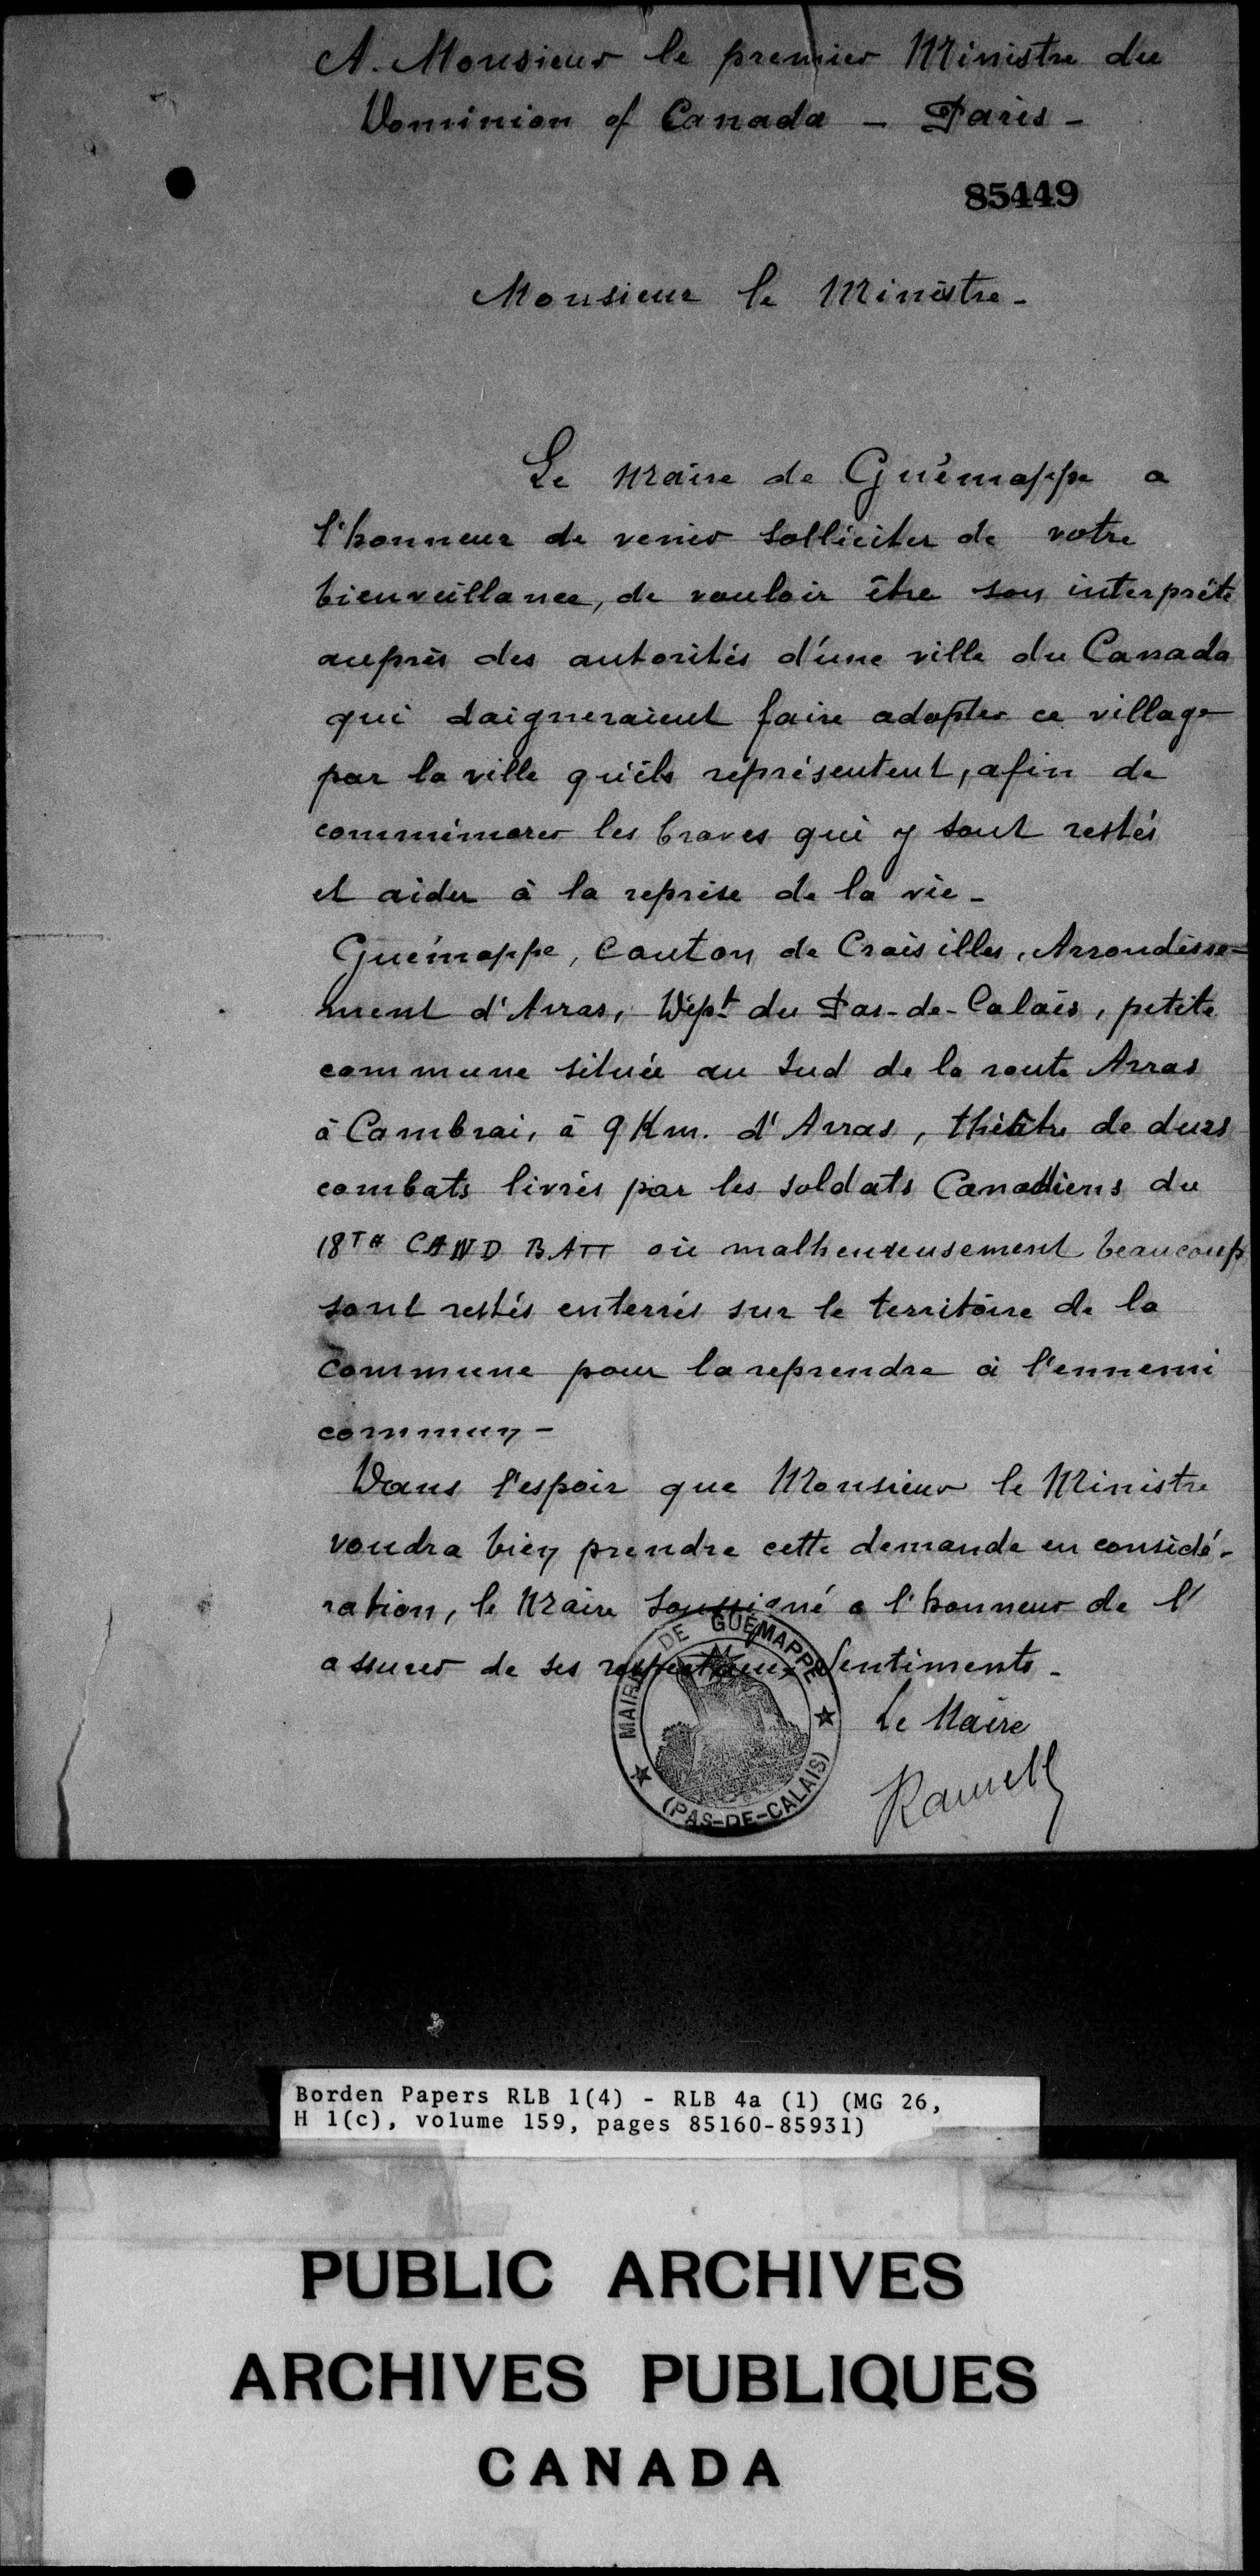 A. Monsieur le premier Ministre du
Dominion of Canada - Paris -
85449
Monsieur le Ministre -
Le Maire de Guémappe a
l'honneur de venir solliciter de votre
bienveillance, de vouloir être son interprète
auprès des autorités d'une ville du Canada
qui daigneraient faire adopter ce village
par la ville qu'ils représentent, afin de
commémorer les braves qui y sont restés
et aider à la reprise de la vie -
Guémappe, Canton de Croisilles, Arrondisse-
ment d'Arras, Dépt du Pas-de-Calais, petite
commune située au Sud de la route Arras
à Cambrai, à 9 Km. d'Arras, théâtre de durs
combats livrés par les soldats Canadiens du
18TH CAND BATT où malheureusement beaucoup
sont restés enterrés sur le territoire de la
commune pour la reprendre à l'ennemi
commun -
Dans l'espoir que Monsieur le Ministre
voudra bien prendre cette demande en considé-
ration, le Maire soussigné a l'honneur de l'
assurer de ses respectueux Sentiments -
MAIRIE DE GUÉMAPPE
(PAS-DE-CALAIS)
Le Maire
Borden Papers RLB 1(4) - RLB 4a (1) (MG 26,
H 1(c), volume 159, pages 85160-85931)
PUBLIC ARCHIVES
ARCHIVES PUBLIQUES
CANADA